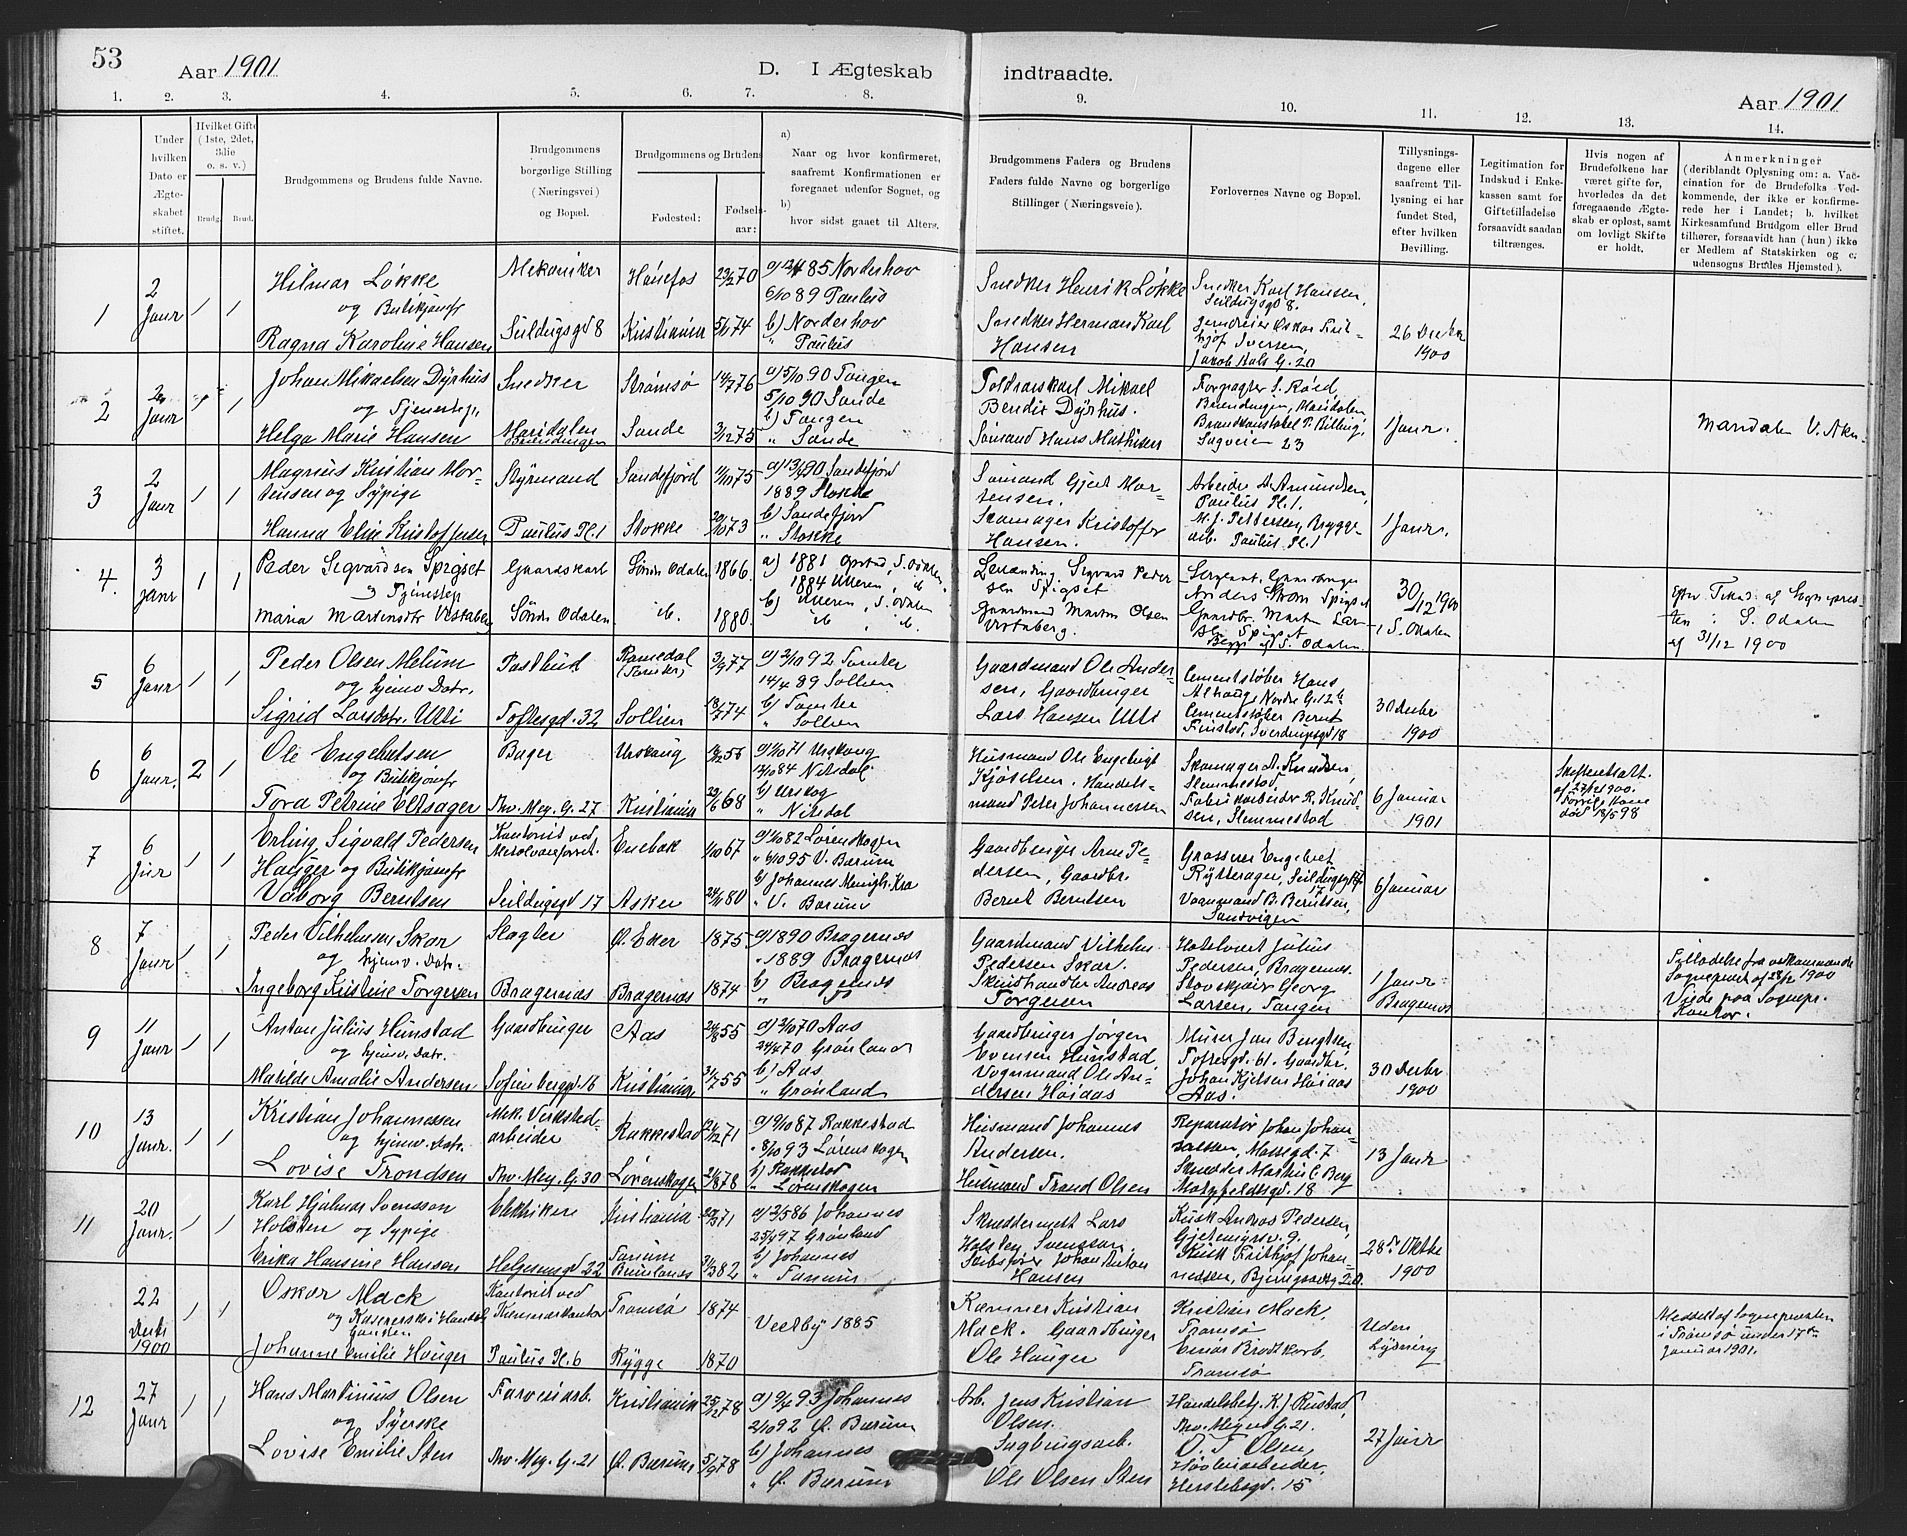 53
Aar 1901
D. I Ægteskab indtraadte.
Aar 1901
1. 2. 3. 4. 5. 6. 7. 8. 9. 10. 11. 12. 13. 14.
Under hvilken Dato er Ægteskabet stiftet.
Hvilket Gifte (1ste, 2det, 3die o. s. v.)
Brudg. Brud.
Brudgommens og Brudens fulde Navne.
Brudgommens borgerlige Stilling (Næringsvei) og Bopæl.
Brudgommens og Brudens
Fødested: Fødselsaar:
a) Naar og hvor konfirmeret, saafremt Konfirmationen er foregaaet udenfor Sognet, og
b) hvor sidst gaaet til Alters.
Brudgommens Faders og Brudens Faders fulde Navne og borgerlige Stillinger (Næringsveie).
Forlovernes Navne og Bopæl.
Tillysningsdagene eller saafremt Tillysning ei har fundet Sted, efter hvilken Bevilling.
Legitimation for Indskud i Enkekassen samt for Giftetilladelse forsaavidt saadan tiltrænges.
Hvis nogen af Brudefolkene har været gifte før, hvorledes da det foregaaende Ægteskab er opløst, samt om lovligt Skifte er holdt.
Anmerkninger (deriblandt Oplysning om: a. Vaccination for de Brudefolks Vedkommende, der ikke er konfirmerede her i Landet; b. hvilket Kirkesamfund Brudgom eller Brud tilhører, forsaavidt han (hun) ikke er Medlem af Statskirken og c. udensogns Brudes Hjemsted.)
1
2 Janr
1 1
Hilmar Løkke
og Butikjomfr
Ragna Karoline Hansen
Mekaniker
Seildugsgd 8
Hønefos
Kristiania
a) 12/4 85 Norderhov
6/10 89 Paulus
b) Norderhov
" Paulus
Snedker Henrik Løkke
Snedker Herman Karl
Hansen
Snedker Karl Hansen,
Seildugsgd 8.
Jakob Aals G. 20
26 Decbr
1900
2
Janr
1 1
Johan Mikaelsen Dyrhus
og Tjenestep.
Helga Marie Hansen
Snedker
Maridalen
Strømsø 14/7 76
Sande 3/12 75
a) 5/10 90 Tangen
5/10 90 Sande
b) Tangen
" Sande
Toldraarskarl Mikael
Bendix Dyrhus.
Sømand Hans Mathisen
Forpagter S. Røed,
Maridalen,
Brandkonstabel P. Billing,
Sagveien 23
1 Janr.
Maridalen V. Aker.
3
2 Janr
1 1
Magnus Kristian Mortensen og Sypige
Hanna Elise Kristoffersen
Styrmand
Paulus Pl. 1
Sandefjord 75
Stokke 20/10 73
a) 90 Sandefjord
1889 Stokke
b) Sandefjord
" Stokke
Sømand Gjert Mortensen.
Skomager Kristoffer
Hansen.
Arbeider A. Amundsen,
Paulus Pl. 1.
M. J. Pettersen, Bryggearb. Paulus Pl. 1
1 Janr.
4.
3 Janr
1 1
Peder Sigvardsen Spigset
og Tjenestep
Maria Martinsdtr
Gaardskarl
Søndr Odalen
Søndr Odalen 1866.
ib. 1880.
a) 1881 Opstad, S. Odalen
1884 Ulleren, ib.
b) Ulleren, S. Odalen
ib. ib.
Sigvard Pedersen Spigset
Gaardmand Martin Olsen
Anders Strøm Spigset
Gaardbr. Martin Larsen Spigset
S. Odalen
30/12 1900
i S. Odalen
efter Tilsend. af Sognepresten i S. Odalen
af 31/12 1900
5
6 Janr
1 1
Peder Olsen Melum
og hjemv. Datr.
Sigrid Larsdatr. Utti
Postbud
Toftesgd. 32
Romedal
Sollien 74
a) 2/10 92 Tomter
14/4 89 Sollien
b) Tomter
" Sollien
Gaardmand Ole Andersen, Gaardbruger
Lars Hansen Utti
Cementstøber Hans
Alhaug, Nordre G. 12b
Cementstøber Bernt
Finstad, Sverdrupsgd 18
30 Decbr
1900
6
6 Janr.
2 1
Ole Engebretsen
og Butikjomfr
Tora Petrine Eltsager
Bager
Thv. Mey. G. 27
Urskoug 55
Kristiania 68
a) 71 Urskoug
84 Nitedal
b) Urskog
" Nitedal
Husmand Ole Engebrigt
Kjøselsen. Handelsmand Peter Johannessen
Skomager A. Knudsen,
Slemmestad.
Fabrikarbeider R. Knudsen, Slemmestad
6 Januar
1901
Skifteattest.
af 27/12 1900.
Forrige Kone
død 18/5 98
7
6 Janr
1 1
Erling Sigvald Pedersen
Hauger og Butikjomfr
Valborg Berntsen
Kontorist ved
Seildugsgd 17
Enebak 1/10 67
Asker 80
a) 82 Lørenskogen
" 6/10 95 V. Bærum
b) Johannes Menigh. Kra
" V. Bærum
Gaardbruger Arne Pedersen, Gaardbr.
Bernt Berntsen
Grosserer Engebret
Rytterager, Seildugsgd 17
Vognmand B. Berntsen,
Sandvigen
6 Januar
8
7 Janr
1 1
Peder Vilhelmsen Skar
og hjemv. Datr.
Ingeborg Kristine Torgersen
Slagter
Bragernæs
Ø. Eker 1875
Bragernæs 1874
a) 1890 Bragernæs
" 1889 Bragernæs
b) Bragernæs
Gaardmand Vilhelm
Pedersen Skar.
Skindhandler Andreas
Torgersen
Hotelvert Julius
Pedersen, Bragernæs.
Georg
Larsen, Tangen
1 Janr.
Bragernæs
Tilladelse fra vedkommende
Sogneprest af 28/12 1900
Viede paa Sognepr.
Kontor.
9
11 Janr
1 1
Anton Julius Hunstad
og hjemv. Datr.
Matilde Amalie Andersen
Gaardbruger
Sofienberggd. 16
Aas 55
Kristiania 55
a) 2/10 70 Aas
24/4 70 Grønland
b) Aas
" Grønland
Gaardbruger Jørgen
Evensen Hunstad.
Vognmand Ole Andersen Høiaas
Murer Jan Bengtsen
Toftesgd. 61. Gaardbr.
Johan Kjelsen Høiaas
Aas.
30 Decbr
1900
10
13 Janr.
1 1
Kristian Johannessen
og hjemv. Datr.
Lovise Trondsen
Mek. Virkstedarbeider
Thv. Mey. G. 30
Rakkestad 71
Lørenskogen 78
a) 9/10 87 Rakkestad
" 8/10 93 Lørenskogen
b) Rakkestad
" Lørenskogen
Husmand Johannes
Andersen.
Husmand Trond Olsen
Reparatør Johan Johansen, Mossegd. 7
Skrædder Martin C. Berg
Markveigd. 18
13 Janr
11
20 Janr.
1 1
Karl Hjalmar Svensson
Holsten og Sypige
Erika Hansine Hansen
Elektriker
Helgesensgd 22
Kristiania 71
Tanum
a) 2/5 86 Johannes
25/4 97 Grønland
b) Johannes
" Tanum
Skræddermest Lars
Holsten, Svensson.
Johan Anton
Hansen
Kusk Andreas Pedersen,
Gjetemyrsv. 9.
Kusk Frithjof Johannessen,
28de Oktbr
1900
22
Decbr
1900
1 1
Oskar Mack
og
Johanne Emilie Hauger
Kontorist ved
Kæmnerkontor
Paulus Pl. 6
Tromsø 1874
Rygge 1870
Vestby 1885
Kæmner Kristian
Mack. Gaardbruger
Ole Hauger
Kristian Mack,
Tromsø
Einar Brodtkorb,
Tromsø
Uden
Lysning
Meddelt af Sognepresten
i Tromsø under 17de
Januar 1901.
12
27 Janr
1 1
Hans Martinius Olsen
og Syerske
Lovise Emilie Sten
Farveriarb.
Thv. Mey. G. 21
Kristiania 25/12 78
Ø. Bærum 5/9 78
a) 9/4 93 Johannes
2/10 92 Ø. Bærum
b) Johannes
" Ø. Bærum
Arb. Jens Kristian
Olsen.
Sagbrugsarb.
Ole Olsen Sten
Handelsbetj. K. J. Rustad,
Thv. Meyers G. 21.
O. T. Olsen,
Høvleriarbeider,
Herslebsgd. 15
27 Janr